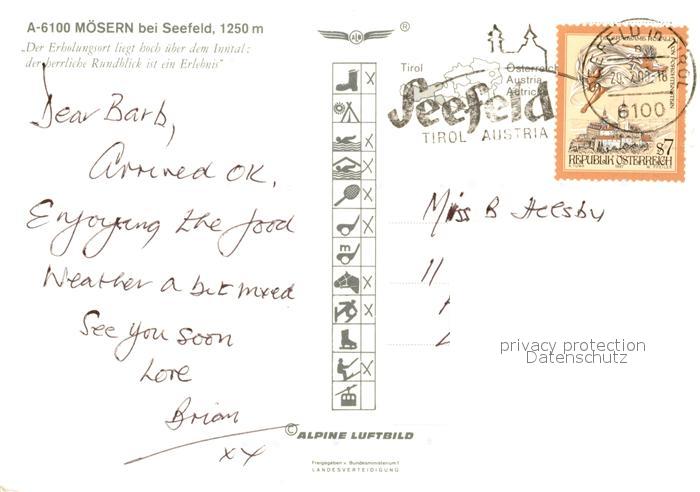 A-6100 MÖSERN bei Seefeld, 1250 m
„Der Erholungsort liegt hoch über dem Inntal:
der herrliche Rundblick ist ein Erlebnis"
Dear Barb,
Arrived OK.
Enjoying the food
Weather a bit mixed
See you soon
Love
Brian
xx
®
X
X
X
X
X
m
X
X
X
© ALPINE LUFTBILD
Freigegeben v. Bundesministerium f.
LANDESVERTEIDIGUNG
Tirol
Österreich
Austria
Autriche
Seefeld
TIROL AUSTRIA
SEEFELD IN TIROL
6100
S7
REPUBLIK ÖSTERREICH
Miss B Helsby
11
privacy protection
Datenschutz